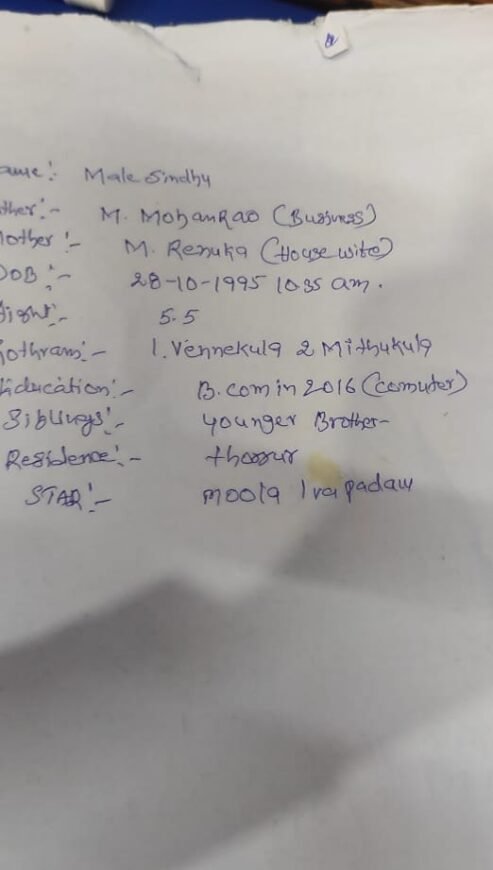 ame:- Male Sindhu
ther:- M. MohanRao (Business)
other:- M. Renuka (House wife)
DOB:- 28-10-1995 10 35 am.
ight:- 5.5
othram:- 1. Vennekula 2 Mithukula
Education:- B.com in 2016 (comuter)
Siblings:- younger Brother
Residence:- thorrur
STAR:- moola 1va padam